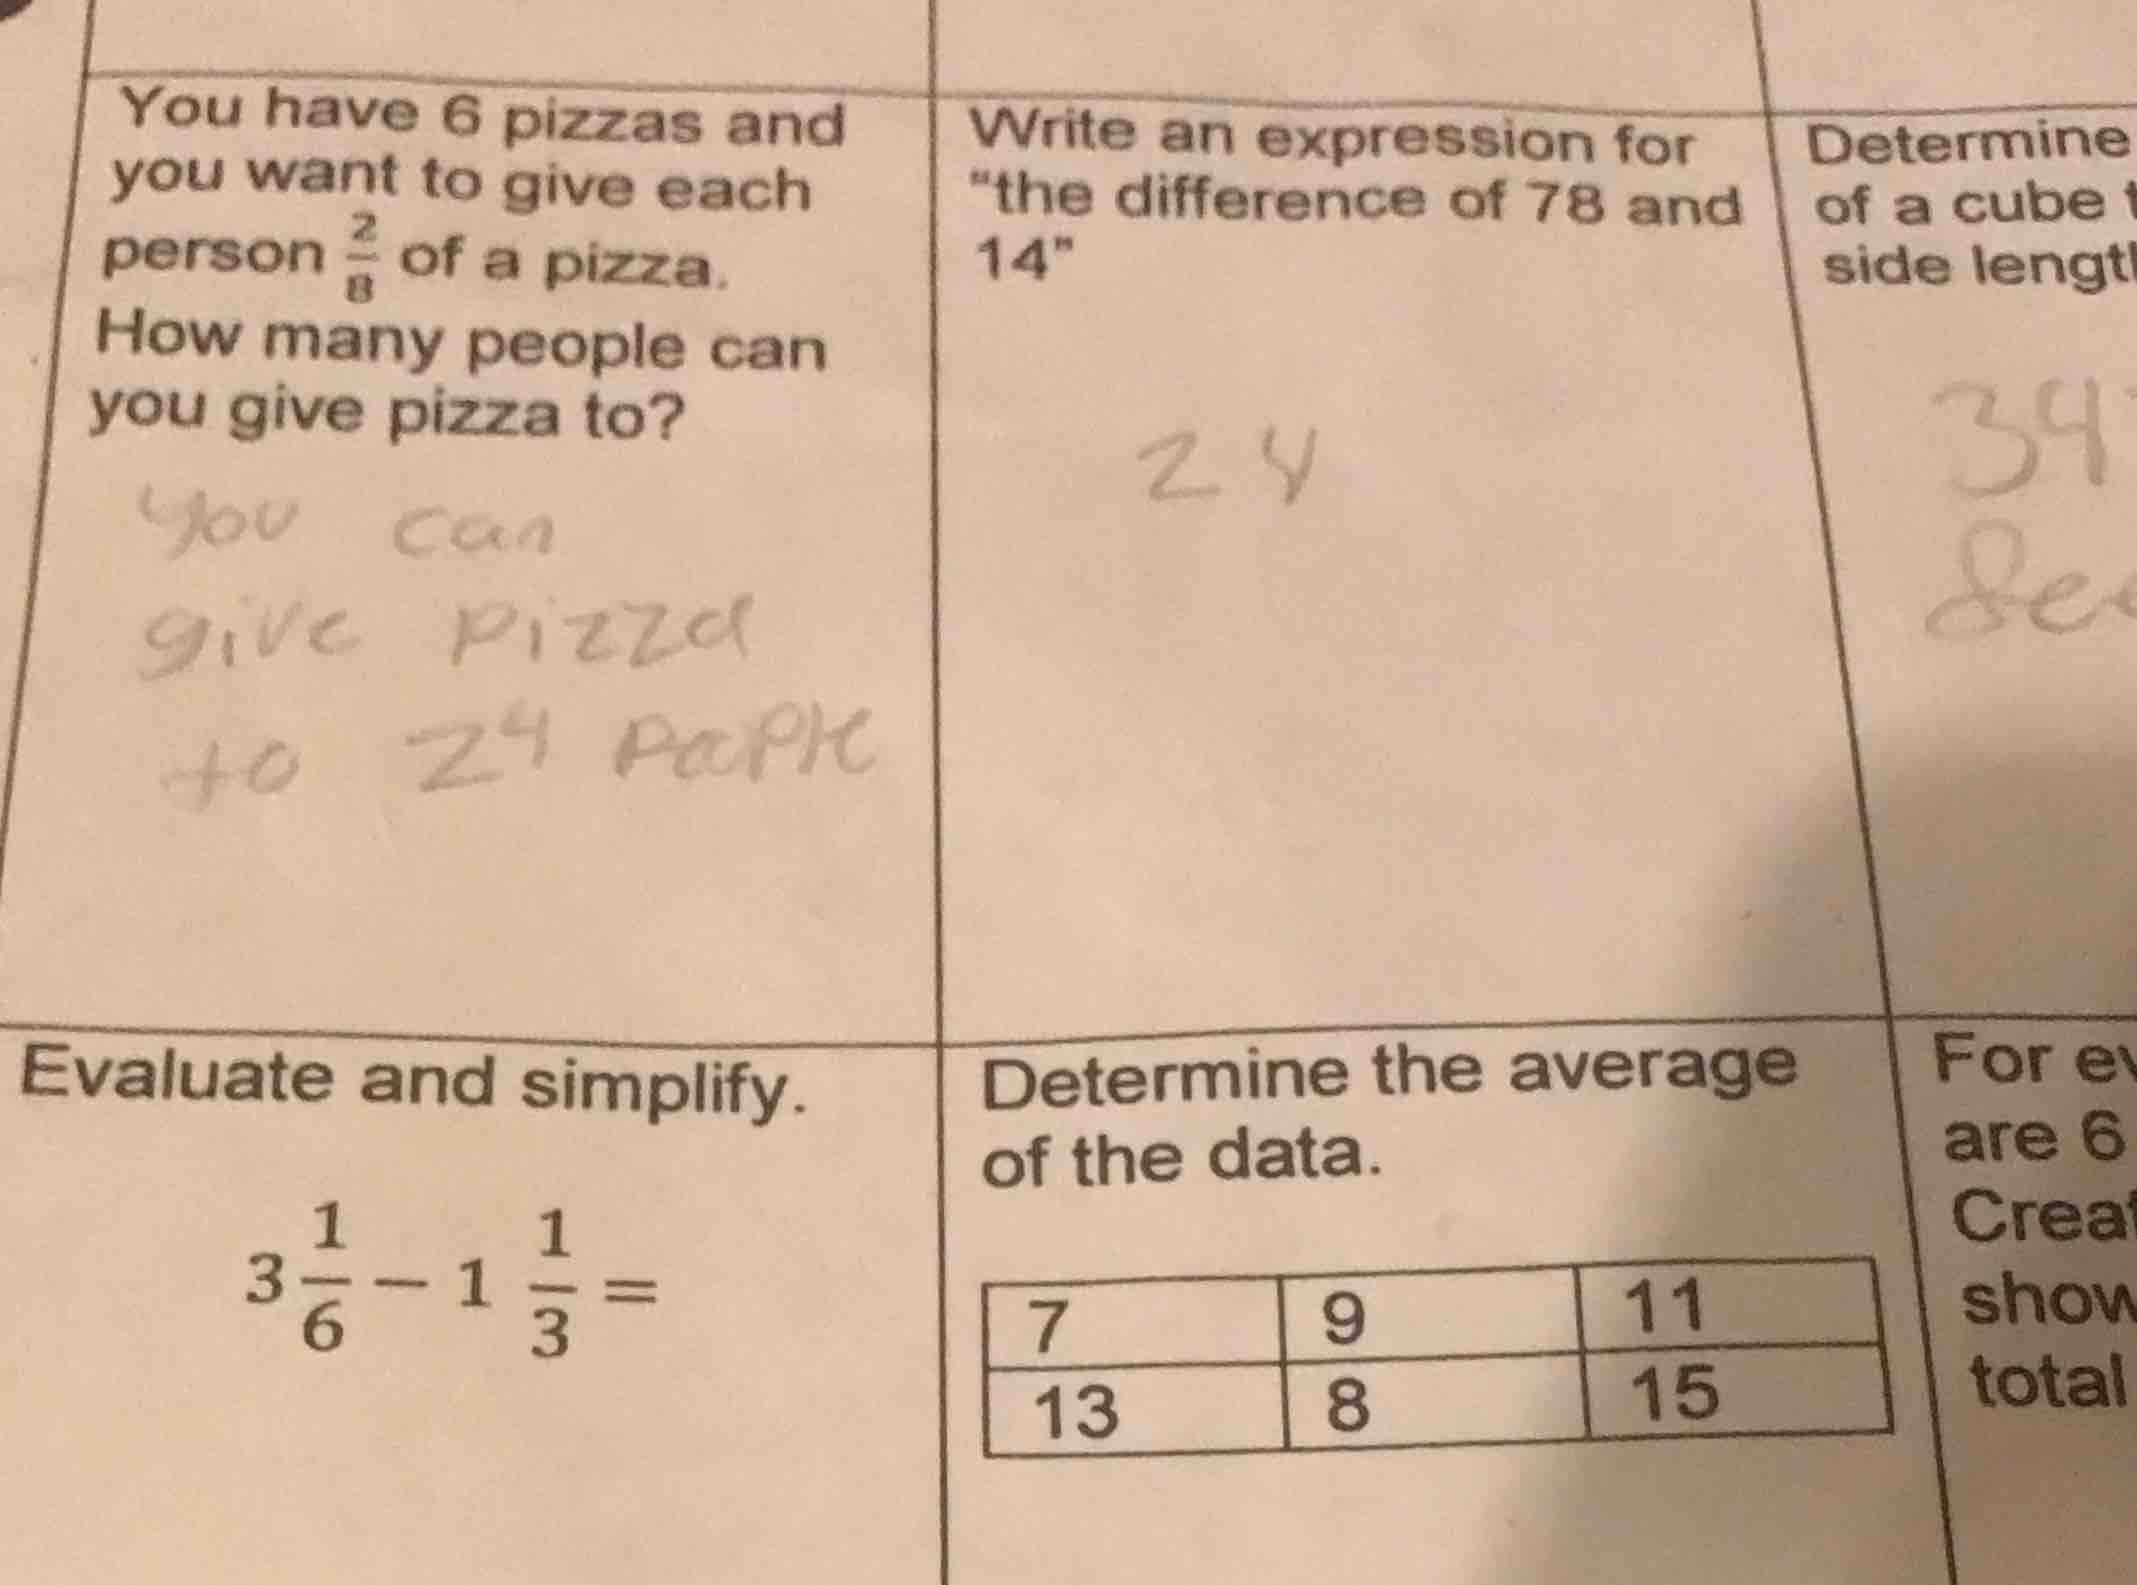 You have 6 pizzas and
you want to give each
person 2/8 of a pizza.
How many people can
you give pizza to?
you can
give pizza
to 24 paple
Write an expression for
"the difference of 78 and
14"
24
Determine
of a cube
side
34
Evaluate and simplify.
3 1/6 − 1 1/3 =
Determine the average
of the data.
7 9 11
13 8 15
For
are 6
total